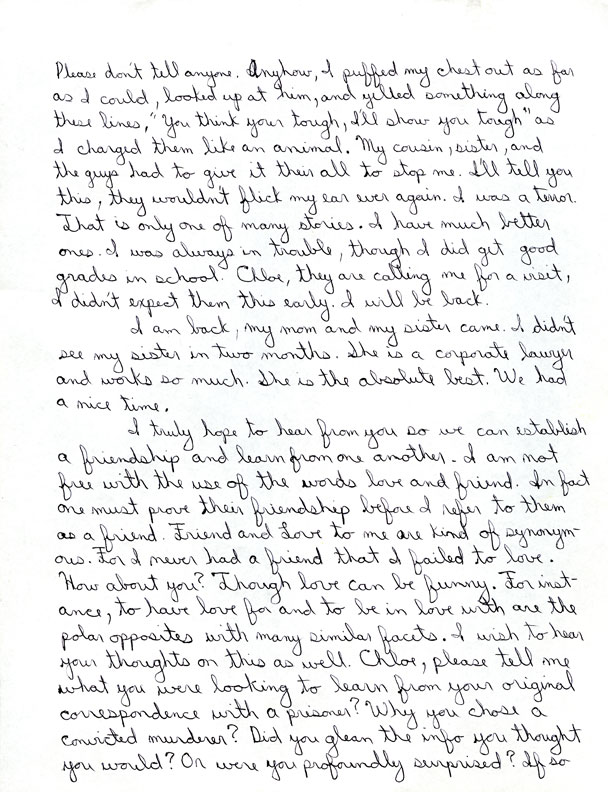 Please don't tell anyone. Anyhow, I puffed my chest out as far
as I could, looked up at him, and yelled something along
these lines, "You think your tough, I'll show you tough" as
I charged them like an animal. My cousin, sister, and
the guys had to give it their all to stop me. I'll tell you
this, they wouldn't flick my ear ever again. I was a terror.
That is only one of many stories. I have much better
ones. I was always in trouble, though I did get good
grades in school. Chloe, they are calling me for a visit,
I didn't expect them this early. I will be back.
I am back, my mom and my sister came. I didn't
see my sister in two months. She is a corporate lawyer
and works so much. She is the absolute best. We had
a nice time.
I truly hope to hear from you so we can establish
a friendship and learn from one another. I am not
free with the use of the words love and friend. In fact
one must prove their friendship before I refer to them
as a friend. Friend and Love to me are kind of synonym-
ous. For I never had a friend that I failed to love.
How about you? Though love can be funny. For inst-
ance, to have love for and to be in love with are the
polar opposites with many similar facets. I wish to hear
your thoughts on this as well. Chloe, please tell me
what you were looking to learn from your original
correspondence with a prisoner? Why you chose a
convicted murderer? Did you glean the info you thought
you would? Or were you profoundly surprised? If so